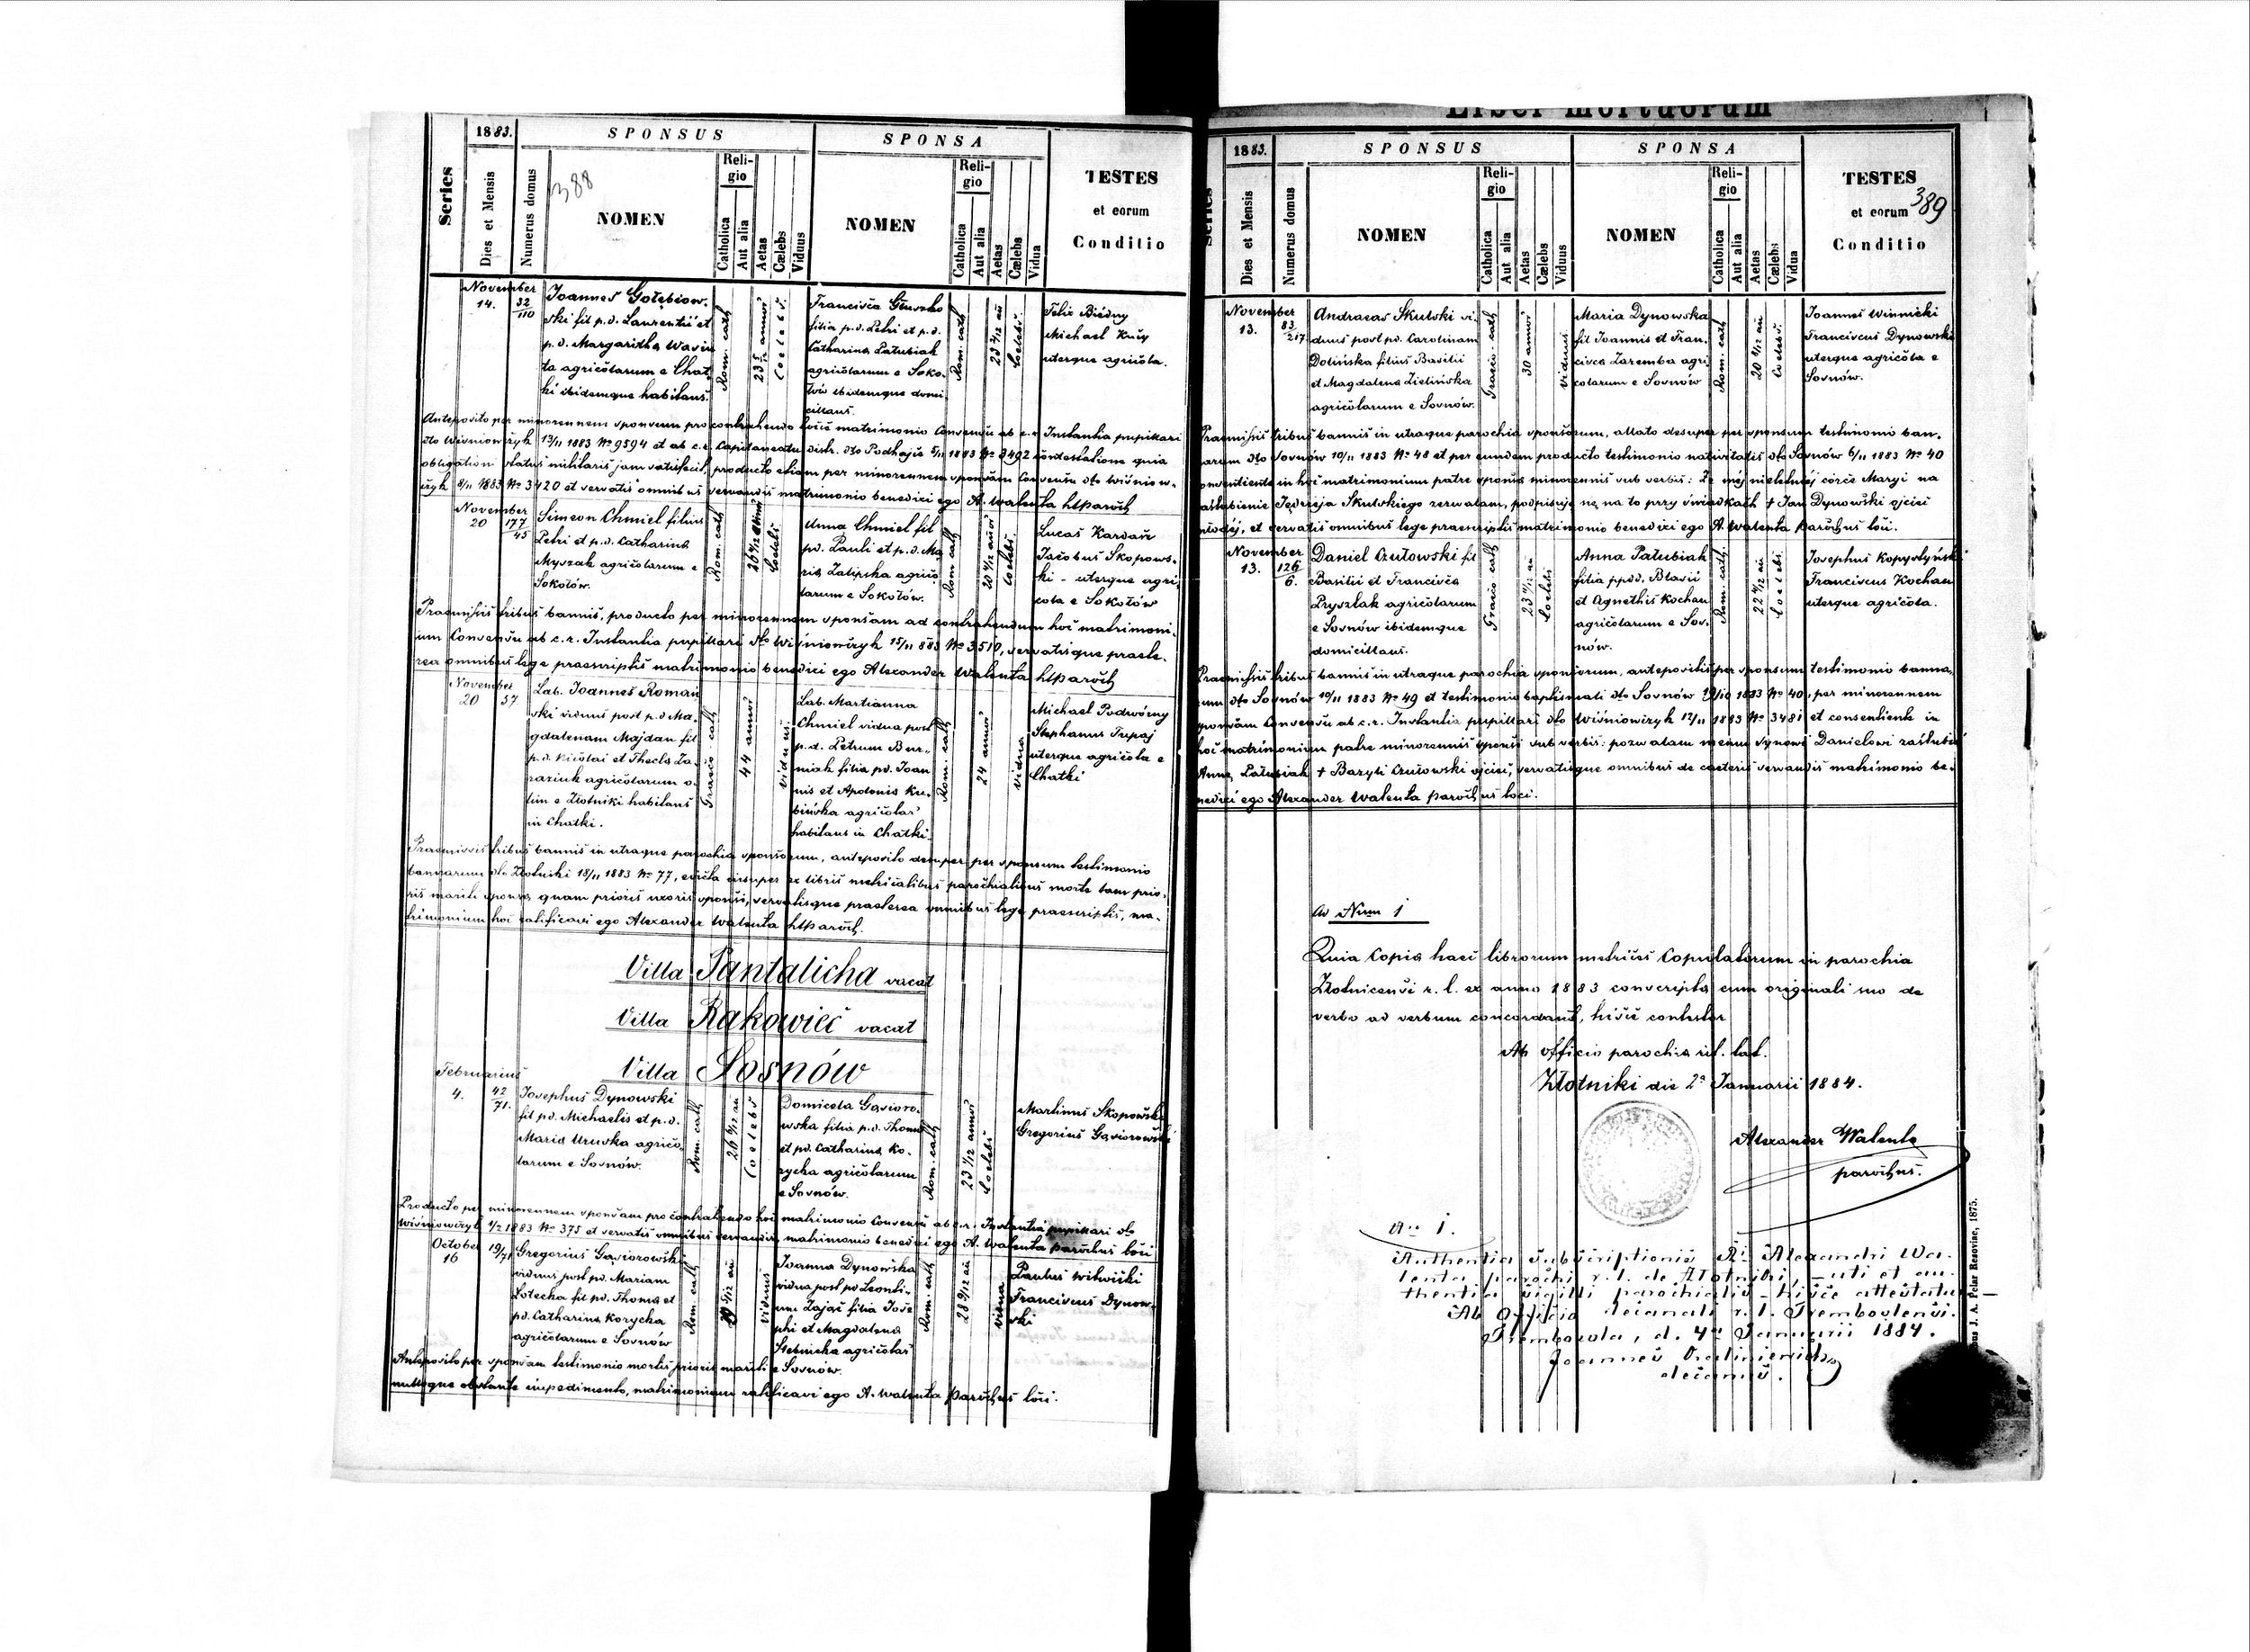 1883.
SPONSUS
SPONSA
Series
Dies et Mensis
Numerus domus
388
NOMEN
Religio
Catholica
Aut alia
Aetas
Cælebs
Viduus
NOMEN
Religio
Catholica
Aut alia
Aetas
Cælebs
Vidua
TESTES
et eorum
Conditio
November
14.
32/110
Joannes Gołębiow-
ski fil p.d. Laurentii et
p.d. Margaritha Wasiu
ta agricolarum e Chat
ki ibidemque habitans.
Rom. cath
Coelebs
Francisca Głuszko
filia p.d. Petri et p.d.
Catharina Patusiak
agricolarum e Soko-
łów ibidemque domi
cilians.
Rom. cath
Coelebs
Felix Biedny
Michael Kucy
uterque agricola.
Anteposito per minorennem sponsum pro contrahendo hocce matrimonio Consensu ab c.r. Instantia pupillari
dto Wiśniowczyk 13/11 1883 No 9594 et ab c.r. Capitaneatu distr. dto Podhajce 5/11 1883 No 8492 contestatione quia
obligationi status militaris jam satisfecit, producto etiam per minorennem sponsam Consensu dto Wiśniow-
czyk 8/11 1883 No 3420 et servatis omnibus servandis matrimonio benedixi ego A. Walenta
November
20
177/45
Simeon Chmiel filius
Petri et p.d. Catharina
Myszak agricolarum e
Sokołów.
Rom. cath
Coelebs
Anna Chmiel fil
pd. Pauli et p.d. Ma
ria Zalipska agrico
larum e Sokołów.
Rom cath
20 4/12 annor
Coelebs
Lucas Kardasz
Jacobus Skopows-
ki - uterque agri
cola e Sokołów
Praemissis tribus bannis, producto per minorennem sponsam ad contrahendum hoc matrimoni-
um Consensu ab c.r. Instantia pupillari dto Wiśniowczyk 15/11 883 No 3510, servatisque praete-
rea omnibus lege praescriptis matrimonio benedixi ego Alexander Walenta
November
20
57
Lab. Joannes Roman
ski viduus post p.d Ma-
gdalenam Majdan fil
p.d. Nicolai et Thecla La-
zariuk agricolarum o-
lim e Złotniki habitans
in Chatki.
Graeco cath
44 annor
viduus
Lab. Martianna
Chmiel vidua post
p.d. Petrum Bur-
niak filia pd. Joan
nis et Apolonia Ku-
bińska agricolas
habitans in Chatki.
Rom. cath
24 annor
vidua
Michael Podwórny
Stephanus Trpaj
uterque agricola e
Chatki
Praemissis tribus bannis in utraque parochia sponsorum, anteposito desuper per sponsum testimonio
bannorum dto Złotniki 18/11 1883 No 77, evicta insuper ex libris metricalibus parochialibus morte tam prio-
ris mariti sponsa quam prioris uxoris sponsi, servatisque praeterea omnibus lege praescriptis, ma-
trimonium hoc ratificavi ego Alexander Walenta
Villa Pantalicha vacat
Villa Rakowiec vacat
Villa Sosnów
Februarius
4.
42/71.
Josephus Dynowski
fil pd. Michaelis et p.d.
Maria Uruska agrico
larum e Sosnów.
Rom. cath
Coelebs
Domicela Gąsioro-
wska filia p.d. Thoma
et pd. Catharina Ko-
rycka agricolarum
e Sosnów.
Rom. cath
23 1/12 annor
Coelebs
Martinus Skopowski
Gregorius Gąsiorowski
Producto per minorennem sponsam pro contrahendo hoc matrimonio Consensu ab c.r. Instantia pupillari dto
Wiśniowczyk 1/2 1883 No 375 et servatis omnibus servandis, matrimonio benedixi ego A. Walenta parochus loci
October
16
19/71
Gregorius Gąsiorowski
viduus post pd. Mariam
Łotecka fil pd. Thoma et
pd. Catharina Korycka
agricolarum e Sosnów
Rom cath
viduus
Joanna Dynowska
vidua post pd Leonti-
um Zając filia Jose
phi et Magdalena
Stebnicka agricolas
e Sosnów.
Rom. cath
28 9/12 an
vidua
Paulus Witwicki
Franciscus Dynow-
ski
Anteposito per sponsam testimonio mortis prioris mariti
nulloque obstante impedimento, matrimonium ratificavi ego A. Walenta parochus loci.
Liber mortuorum
1883.
SPONSUS
SPONSA
Series
Dies et Mensis
Numerus domus
NOMEN
Religio
Catholica
Aut alia
Aetas
Cælebs
Viduus
NOMEN
Religio
Catholica
Aut alia
Aetas
Cælebs
Vidua
TESTES
et eorum
Conditio
389
November
13.
83/217
Andraeas Skulski vi-
duus post pd. Carolinam
Dolińska filius Basilii
et Magdalena Zielińska
agricolarum e Sosnów.
Graeco cath
30 annor
viduus
Maria Dynowska
fil Joannis et Fran-
cisca Zaremba agri
colarum e Sosnów
Rom. cath
20 8/12 an
Coelebs.
Joannes Winnicki
Franciscus Dynowski
uterque agricola e
Sosnów.
Praemissis tribus bannis in utraque parochia sponsorum, allato desuper per sponsum testimonio ban-
orum dto Sosnów 10/11 1883 No 48 et per eundem producto testimonio nativitatis dto Sosnów 6/11 1883 No 40
onsentiente in hoc matrimonium patre sponsa minorennis sub verbis: Że mojej nieletniej córce Maryi na
aślubienie Jędrzeja Skulskiego zezwalam, podpisuję się na to przy świadkach + Jan Dynowski ojciec
młodej, et servatis omnibus lege praescriptis matrimonio benedixi ego A. Walenta parochus loci.
November
13.
126/6.
Daniel Czutowski fil
Basilii et Francisca
Pryszlak agricolarum
e Sosnów ibidemque
domicilians.
Graeco cath
Coelebs
Anna Patusiak
filia ppdd. Blasii
et Agnethis Kochan
agricolarum e Sos-
nów.
Rom. cath
22 4/12 an
Coelebs
Josephus Kopystyński
Franciscus Kochan
uterque agricola.
Praemissis tribus bannis in utraque parochia sponsorum, antepositis per sponsum testimonio banno-
rum dto Sosnów 10/11 1883 No 49 et testimonio baptismati dto Sosnów 19/10 1883 No 40, per minorennem
sponsam Consensu ab c.r. Instantia pupillari dto Wiśniowczyk 12/11 1883 No 3481 et consentiente in
hoc matrimonium patre minorennis sponsi sub verbis: pozwalam mojemu synowi Danielowi zaślubić
Anna Patusiak + Bazyli Czutowski ojciec, servatisque omnibus de caeteris servandis matrimonio be-
nedixi ego Alexander Walenta parochus loci.
Ad Num 1
Quia Copia haec librorum metrices Copulatorum in parochia
Złotnicensi r. l. ex anno 1883 conscripta cum originali suo de
verbo ad verbum concordans, hisce contestor
Ab officio parochia rit. lat.
Złotniki die 2a Januarii 1884.
Alexander Walenta
parochus.
Nr 1.
Authentia subscriptionis Alexandri Wa-
lenta parochi r. l. de Złotniki, - uti et au-
thentia sigilli parochialis - hisce attestatur -
Ab Officio decanali r. l. Trembovlensi.
Trembowla, d. 4ta Januarii 1884.
Joannes
decanus.
J. A. Pelar Resoviae, 1875.